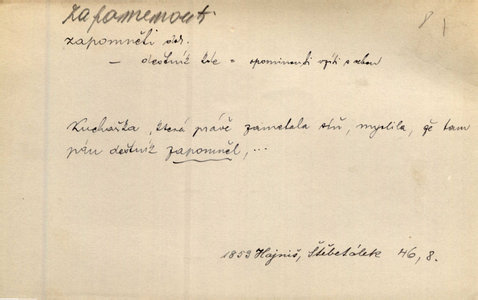 zapomenouti
8
zapomněti
— deštník kde = opomenouti vzíti s sebou
Kuchařka, která právě zametala síň, myslila, že tam
pán deštník zapomněl, ...
1859 Hajniš, Štěbetálek 46, 8.